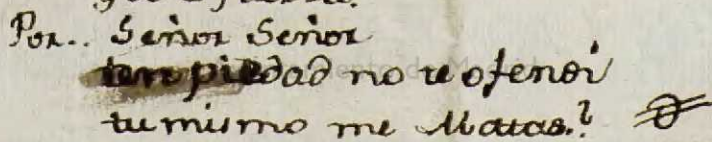 Por.. Señor Señor
ten piedad no te ofendi
tu mismo me Matas.?